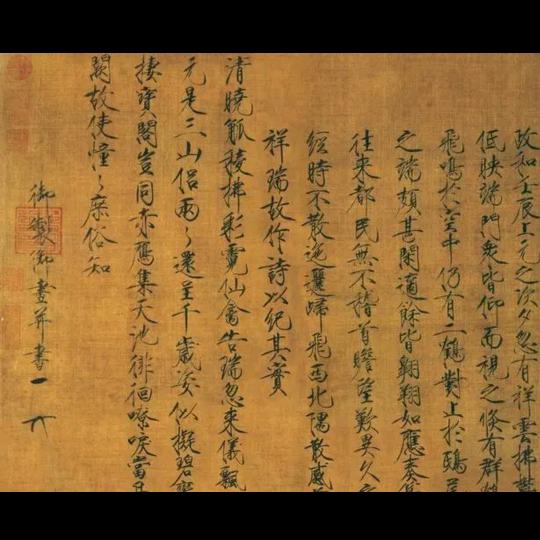 政和壬辰上元之次夕忽有祥雲拂鬱
低映端門衆皆仰而視之倐有群鶴
飛鳴於空中仍有二鶴對止於鴟
之端頗甚閑適餘皆翱翔如應奏
往来都民無不稽首瞻望歎異久
經時不散迤邐歸飛西北隅散感
祥瑞故作詩以紀其實
清曉觚稜拂彩霓仙禽告瑞忽来儀飄
元是三山侶兩〻還呈千歲姿似擬碧鸞
棲寶閣豈同赤鴈集天池徘徊嘹唳當丹
闕故使憧〻庶俗知
御製御畫并書